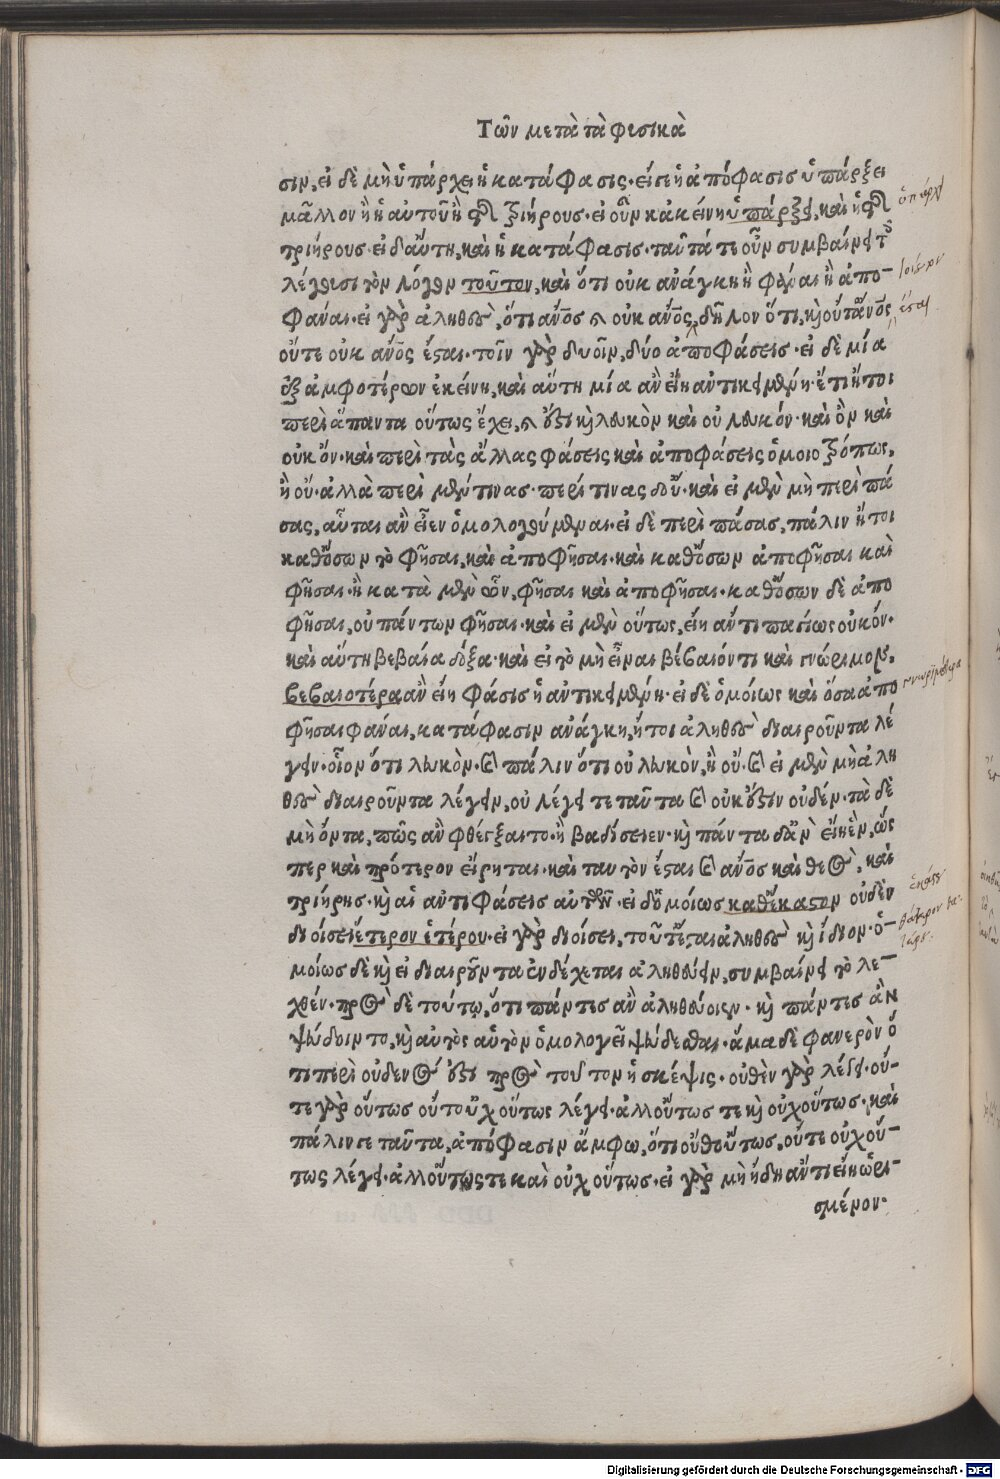 Τῶν μετὰ τὰ φυσικὰ
σιν, εἰ δὲ μὴ ὑπάρχει ἡ κατάφασις· εἴγε ἡ ἀπόφασις ὑπάρξει
μᾶλλον ἢ ἡ αὐτοῦ ἢ τῆς τριήρους· εἰ οὖν κἀκείνη ὑπάρξει, καὶ ἡ τῆς
τριήρους· εἰ δ' αὕτη, καὶ ἡ κατάφασις· ταῦτά τε οὖν συμβαίνει τοῖς
λέγουσι τὸν λόγον τοῦτον, καὶ ὅτι οὐκ ἀνάγκη ἢ φάναι ἢ ἀπο-
φάναι· εἰ γὰρ ἀληθὲς, ὅτι ἄνος καὶ οὐκ ἄνος, δῆλον ὅτι, καὶ οὔτ' ἄνος
οὔτε οὐκ ἄνος ἔσται· τοῖν γὰρ δυοῖν, δύο ἀποφάσεις· εἰ δὲ μία
ἐξ ἀμφοτέρων ἐκείνη, καὶ αὕτη μία ἂν εἴη ἀντικειμένη· ἔτι ἤτοι
περὶ ἅπαντα οὕτως ἔχει, καὶ ἔστι καὶ λευκὸν καὶ οὐ λευκόν· καὶ ὂν καὶ
οὐκ ὄν· καὶ περὶ τὰς ἄλλας φάσεις καὶ ἀποφάσεις ὁμοιοτρόπως,
ἢ οὔ· ἀλλὰ περὶ μέν τινας· περί τινας δ' οὔ· καὶ εἰ μὲν μὴ περὶ πά
σας, αὗται ἂν εἶεν ὁμολογούμεναι· εἰ δὲ περὶ πάσας, πάλιν ἤτοι
καθ' ὅσων τὸ φῆσαι, καὶ ἀποφῆσαι· καὶ καθ' ὅσων ἀποφῆσαι καὶ
φῆσαι· ἢ κατὰ μὲν ὧν, φῆσαι καὶ ἀποφῆσαι· καθ' ὅσων δὲ ἀπο
φῆσαι, οὐ πάντων φῆσαι· καὶ εἰ μὲν οὕτως, εἴη ἄν τι παγίως οὐκ ὄν·
καὶ αὕτη βεβαία δόξα· καὶ εἰ τὸ μὴ εἶναι βέβαιόν τι καὶ γνώριμον,
βεβαιοτέρα ἂν εἴη φάσις ἡ ἀντικειμένη· εἰ δὲ ὁμοίως καὶ ὅσα ἀπο
φῆσαι φάναι, κατάφασιν ἀνάγκη, ἤτοι ἀληθὲς διαιροῦντα λέ
γειν· οἷον ὅτι λευκὸν· καὶ πάλιν ὅτι οὐ λευκόν, ἢ οὔ· καὶ εἰ μὲν μὴ ἀλη
θὲς διαιροῦντα λέγειν, οὐ λέγει τε ταῦτα καὶ οὐκ ἔστιν οὐδέν· τὰ δὲ
μὴ ὄντα, πῶς ἂν φθέγξαιτο· ἢ βαδίσειεν· καὶ πάντα δ' ἂν εἴη ἓν, ὥς
περ καὶ πρότερον εἴρηται· καὶ ταυτὸν ἔσται καὶ ἄνος καὶ θεὸς, καὶ
τριήρης· καὶ αἱ ἀντιφάσεις αὐτῶν· εἰ δ' ὁμοίως καθ' ἕκαστον οὐδὲν
διοίσει ἕτερον ἑτέρου· εἰ γὰρ διοίσει, τοῦτ' ἔσται ἀληθὲς καὶ ἴδιον· ὁ-
μοίως δὲ καὶ εἰ διαιροῦντα ἐνδέχεται ἀληθεύειν, συμβαίνει τὸ λε-
χθέν· πρὸς δὲ τούτῳ, ὅτι πάντες ἂν ἀληθεύοιεν· καὶ πάντες ἂν
ψεύδοιντο, καὶ αὐτὸς αὑτὸν ὁμολογεῖ ψεύδεσθαι· ἅμα δὲ φανερὸν ὅ
τι περὶ οὐδενός ἐστι πρὸς τοῦτον ἡ σκέψις· οὐθὲν γὰρ λέγει· οὔ-
τε γὰρ οὕτως οὔτ' οὐχ οὕτως λέγει· ἀλλ' οὕτως τε καὶ οὐχ οὕτως· καὶ
πάλιν γε ταῦτα, ἀπόφασιν ἄμφω, ὅτι οὔθ' οὕτως, οὔτε οὐχ οὕ-
τως λέγει· ἀλλ' οὕτως τε καὶ οὐχ οὕτως· εἰ γὰρ μὴ ἤδη ἄν τι εἴη ὡρι-
σμένον·
ὑπάρχει
ἔσται
γνωριμώτερα
Digitalisierung gefördert durch die Deutsche Forschungsgemeinschaft - DFG